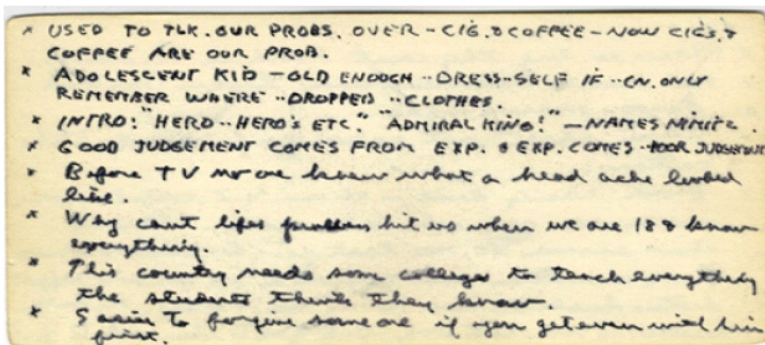 * USED TO TLK. OUR PROBS. OVER - CIG. & COFFEE - NOW CIGS. &
COFFEE ARE OUR PROB.
* ADOLESCENT KID - OLD ENOUGH -- DRESS - SELF IF -- CN. ONLY
REMEMBER WHERE -- DROPPED -- CLOTHES.
* INTRO: "HERD -- HERO'S ETC." "ADMIRAL KING!" - NAMES NIMITZ.
* GOOD JUDGEMENT COMES FROM EXP. & EXP. COMES - POOR JUDGEMENT
* Before TV no one knew what a head ache looked
like.
* Why can't lifes problems hit us when we are 18 & know
everything.
* This country needs some colleges to teach everything
the students think they know.
* Easier to forgive someone if you get even with him
first.